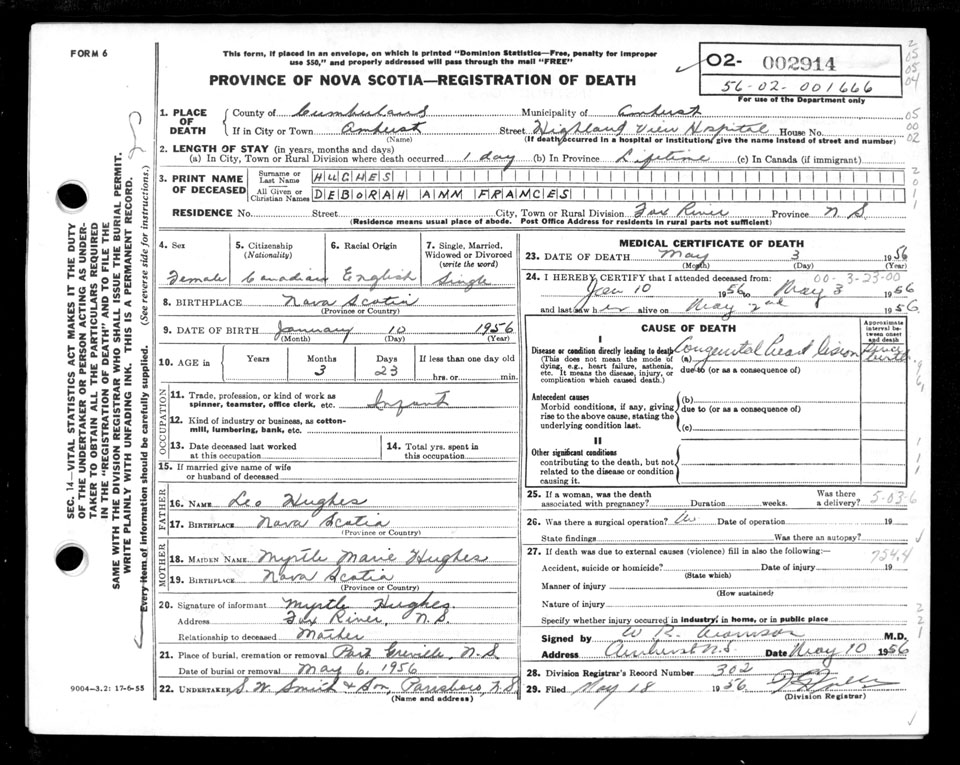 FORM 6
This form, if placed in an envelope, on which is printed "Dominion Statistics—Free, penalty for improper
use $50," and properly addressed will pass through the mail "FREE"
PROVINCE OF NOVA SCOTIA—REGISTRATION OF DEATH
02- 002914
56-02-001666
For use of the Department only
SEC. 14—VITAL STATISTICS ACT MAKES IT THE DUTY
OF THE UNDERTAKER OR PERSON ACTING AS UNDER-
TAKER TO OBTAIN ALL THE PARTICULARS REQUIRED
IN THE "REGISTRATION OF DEATH" AND TO FILE THE
SAME WITH THE DIVISION REGISTRAR WHO SHALL ISSUE THE BURIAL PERMIT.
WRITE PLAINLY WITH UNFADING INK. THIS IS A PERMANENT RECORD.
Every item of information should be carefully supplied. (See reverse side for instructions.)
1. PLACE OF DEATH
County of Cumberland Municipality of Amherst
If in City or Town Amherst Street Highland View Hospital House No.
(Name) (If death occurred in a hospital or institution, give the name instead of street and number)
2. LENGTH OF STAY (in years, months and days)
(a) In City, Town or Rural Division where death occurred 1 day (b) In Province Lifetime (c) In Canada (if immigrant)
3. PRINT NAME OF DECEASED
Surname or Last Name HUGHES
All Given or Christian Names DEBORAH ANN FRANCES
RESIDENCE No. Street City, Town or Rural Division Fox River Province N.S.
(Residence means usual place of abode. Post Office Address for residents in rural parts not sufficient)
4. Sex
Female
5. Citizenship
(Nationality)
Canadian
6. Racial Origin
English
7. Single, Married,
Widowed or Divorced
(write the word)
Single
8. BIRTHPLACE Nova Scotia
(Province or Country)
9. DATE OF BIRTH January 10 1956
(Month) (Day) (Year)
10. AGE in Years Months Days If less than one day old
3 23 hrs. or min.
OCCUPATION
11. Trade, profession, or kind of work as
spinner, teamster, office clerk, etc. Infant
12. Kind of industry or business, as cotton-
mill, lumbering, bank, etc.
13. Date deceased last worked
at this occupation
14. Total yrs. spent in
this occupation
15. If married give name of wife
or husband of deceased
FATHER
16. NAME Leo Hughes
17. BIRTHPLACE Nova Scotia
(Province or Country)
MOTHER
18. MAIDEN NAME Myrtle Marie Hughes
19. BIRTHPLACE Nova Scotia
(Province or Country)
20. Signature of informant Myrtle Hughes
Address Fox River, N.S.
Relationship to deceased Mother
21. Place of burial, cremation or removal Port Greville, N.S.
Date of burial or removal May 6, 1956
22. UNDERTAKER S. W. Smith & Son, Parrsboro, N.S.
(Name and address)
9004—3.2: 17-6-55
MEDICAL CERTIFICATE OF DEATH
23. DATE OF DEATH May 3 1956
(Month) (Day) (Year)
24. I HEREBY CERTIFY that I attended deceased from: 00-3-23-00
Jan 10 1956 to May 3 1956
and last saw her alive on May 2nd 1956
CAUSE OF DEATH
Approximate interval between onset and death
I
Disease or condition directly leading to death
(This does not mean the mode of
dying, e.g., heart failure, asthenia,
etc. It means the disease, injury, or
complication which caused death.)
(a) Congenital heart lesion Since birth
due to (or as a consequence of)
Antecedent causes
Morbid conditions, if any, giving
rise to the above cause, stating the
underlying condition last.
(b)
due to (or as a consequence of)
(c)
II
Other significant conditions
contributing to the death, but not
related to the disease or condition
causing it.
25. If a woman, was the death
associated with pregnancy? Duration weeks. Was there
a delivery? 5-03-6
26. Was there a surgical operation? Date of operation 19
State findings Was there an autopsy?
27. If death was due to external causes (violence) fill in also the following:— 754.4
Accident, suicide or homicide? Date of injury 19
(State which)
Manner of injury
(How sustained)
Nature of injury
Specify whether injury occurred in industry, in home, or in public place
Signed by W. R. M.D.
Address Amherst N.S. Date May 10 1956
28. Division Registrar's Record Number 302
29. Filed May 18 1956
(Division Registrar)